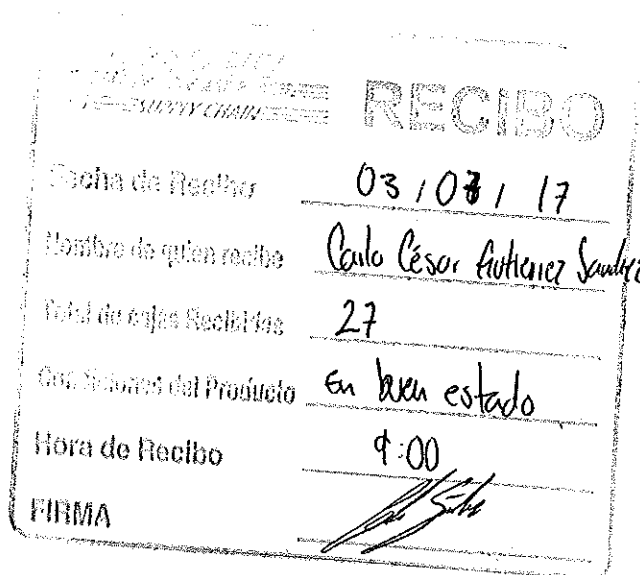 SUPPLY CHAIN
RECIBO
Fecha de Recibo 03 / 07 / 17
Nombre de quien recibe Carlo César Gutierrez Sanchez
Total de cajas Recibidas 27
Condiciones del Producto en buen estado
Hora de Recibo 9:00
FIRMA